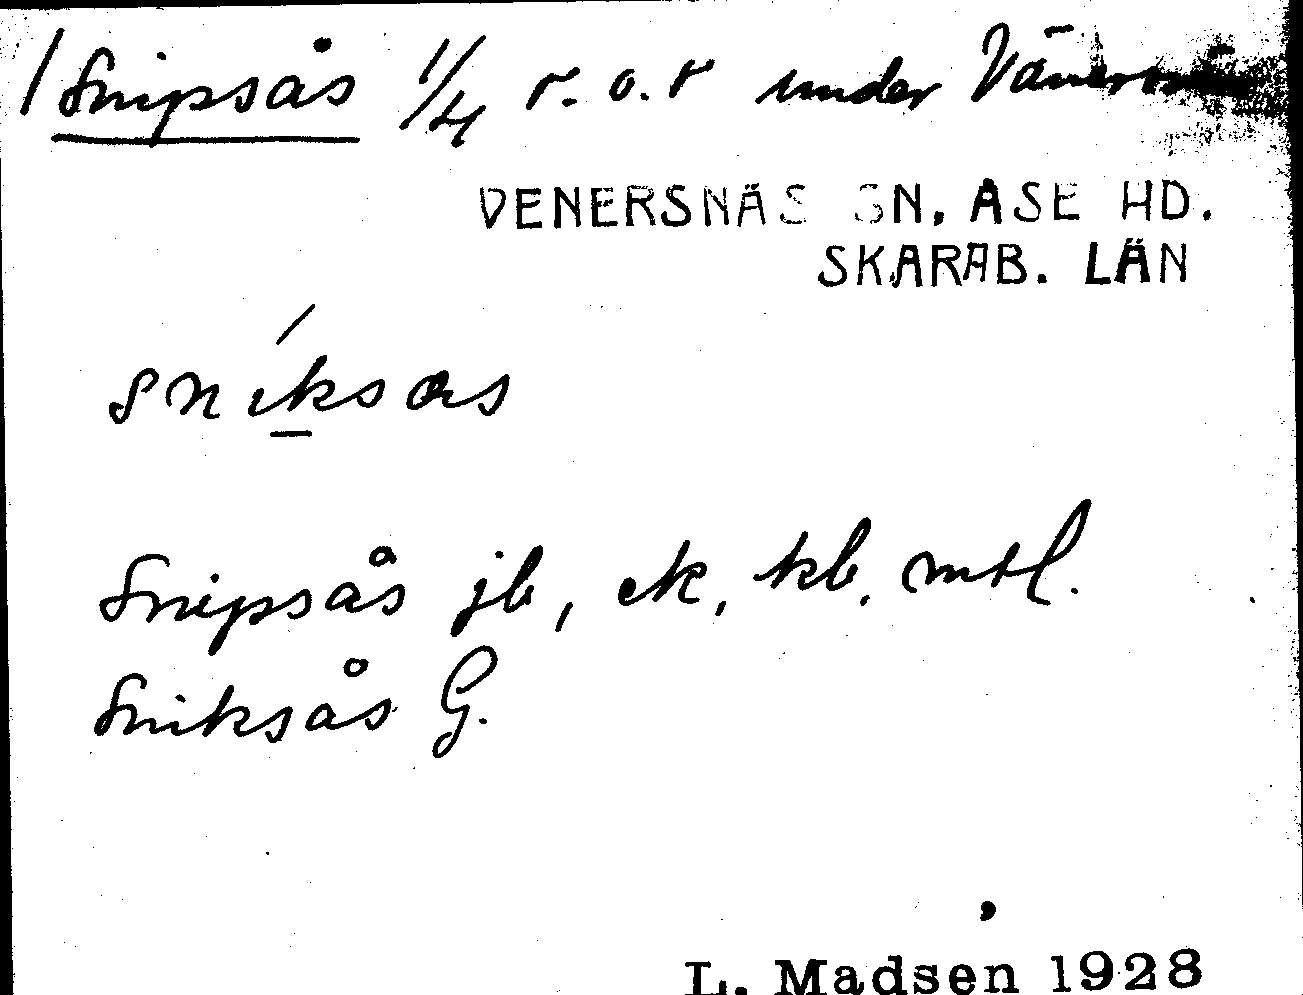 / Snipsås 1/4 r. o. r under
VENERSNÄS SN. ASE HD.
SKARAB. LÄN
sníksas
Snipsås jb, ek, kb, mtl.
Sniksås G.
L. Madsen 1928